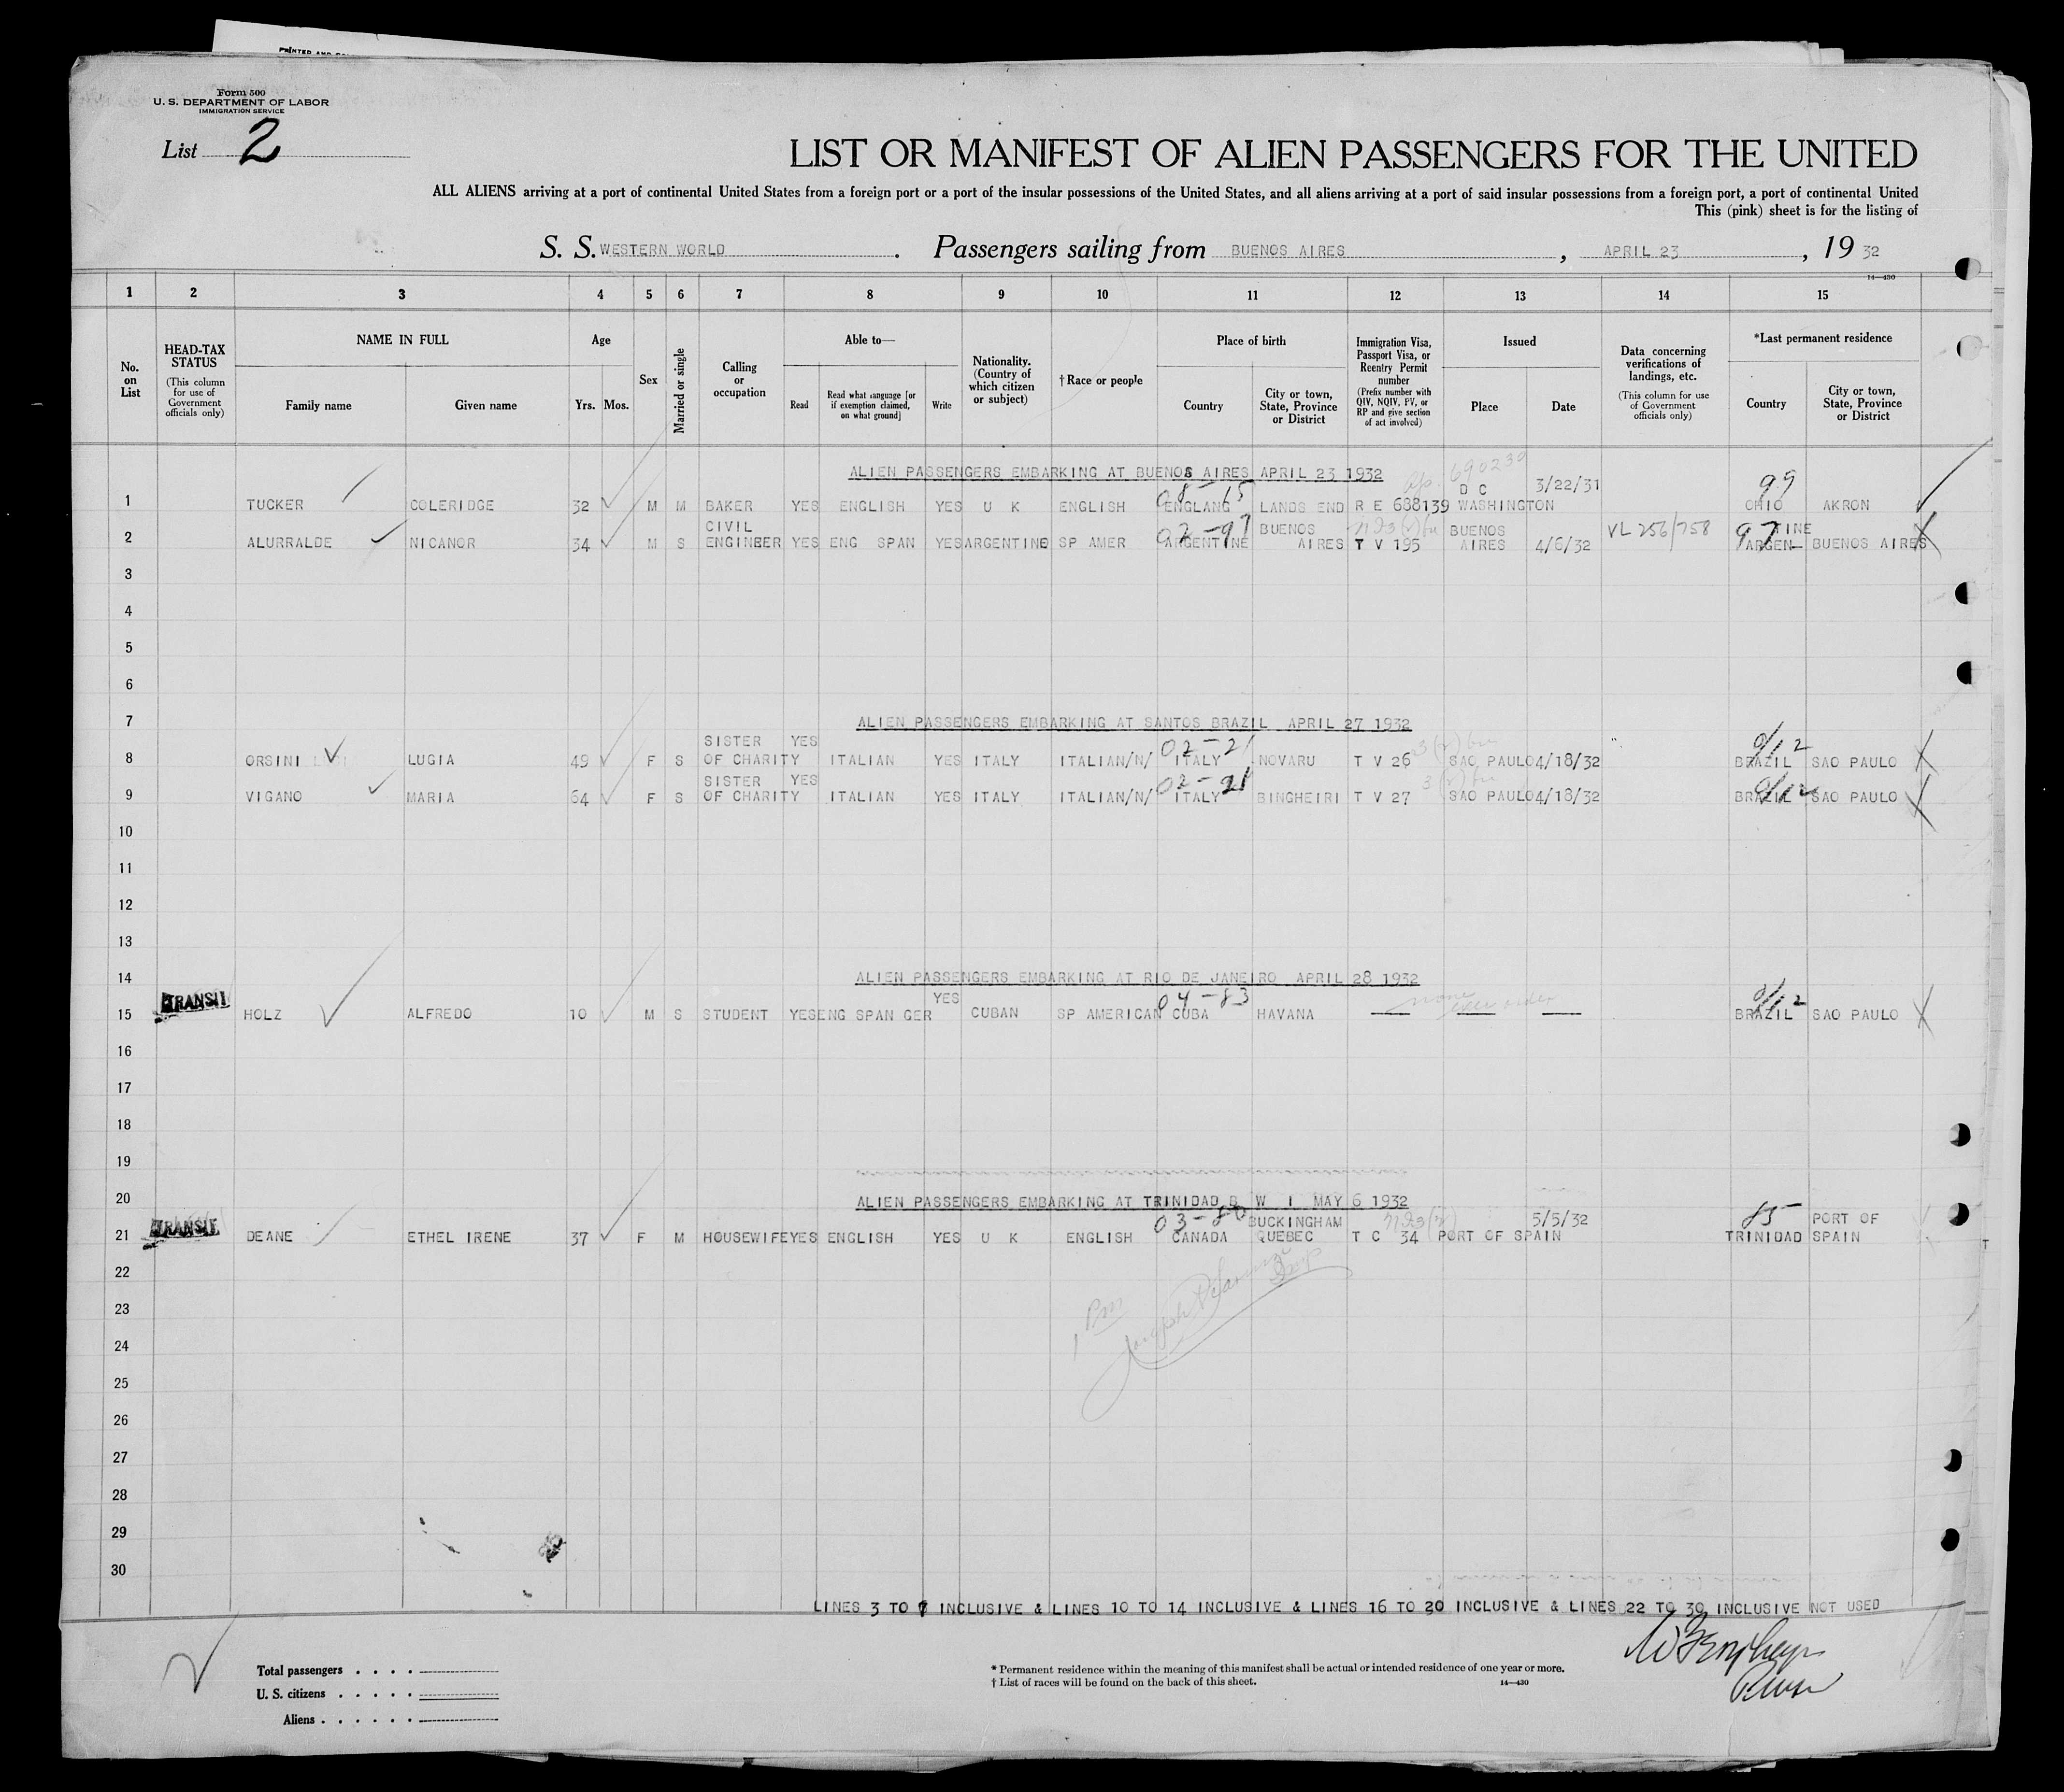 PRINTED AND
Form 500
U. S. DEPARTMENT OF LABOR
IMMIGRATION SERVICE
List 2
LIST OR MANIFEST OF ALIEN PASSENGERS FOR THE UNITED
ALL ALIENS arriving at a port of continental United States from a foreign port or a port of the insular possessions of the United States, and all aliens arriving at a port of said insular possessions from a foreign port, a port of continental United
This (pink) sheet is for the listing of
S. S. WESTERN WORLD . Passengers sailing from BUENOS AIRES , APRIL 23 , 19 32
14—430
1 2 3 4 5 6 7 8 9 10 11 12 13 14 15
No. on List
HEAD-TAX STATUS (This column for use of Government officials only)
NAME IN FULL
Family name Given name
Age
Yrs. Mos.
Sex
Married or single
Calling or occupation
Able to—
Read Read what language [or if exemption claimed, on what ground] Write
Nationality. (Country of which citizen or subject)
† Race or people
Place of birth
Country City or town, State, Province or District
Immigration Visa, Passport Visa, or Reentry Permit number (Prefix number with QIV, NQIV, PV, or RP and give section of act involved)
Issued
Place Date
Data concerning verifications of landings, etc. (This column for use of Government officials only)
*Last permanent residence
Country City or town, State, Province or District
ALIEN PASSENGERS EMBARKING AT BUENOS AIRES APRIL 23 1932
690230
08-15 D C 3/22/31 99
1 TUCKER COLERIDGE 32 M M BAKER YES ENGLISH YES U K ENGLISH ENGLAND LANDS END R E 688139 WASHINGTON OHIO AKRON
CIVIL 02-97 BUENOS BUENOS VL 256/758 97 TINE
2 ALURRALDE NICANOR 34 M S ENGINEER YES ENG SPAN YES ARGENTINE SP AMER ARGENTINE AIRES T V 195 AIRES 4/6/32 ARGEN- BUENOS AIRES
3
4
5
6
7 ALIEN PASSENGERS EMBARKING AT SANTOS BRAZIL APRIL 27 1932
SISTER YES 02-21 0/12
8 ORSINI LUGIA 49 F S OF CHARITY ITALIAN YES ITALY ITALIAN/N/ ITALY NOVARU T V 26 SAO PAULO 4/18/32 BRAZIL SAO PAULO
SISTER YES 02-21 0/12
9 VIGANO MARIA 64 F S OF CHARITY ITALIAN YES ITALY ITALIAN/N/ ITALY BINGHEIRI T V 27 SAO PAULO 4/18/32 BRAZIL SAO PAULO
10
11
12
13
14 ALIEN PASSENGERS EMBARKING AT RIO DE JANEIRO APRIL 28 1932
TRANSIT YES 04-83 none 0/12
15 HOLZ ALFREDO 10 M S STUDENT YES ENG SPAN GER CUBAN SP AMERICAN CUBA HAVANA — — — BRAZIL SAO PAULO
16
17
18
19
20 ALIEN PASSENGERS EMBARKING AT TRINIDAD B W I MAY 6 1932
TRANSIT 03-80 BUCKINGHAM 5/5/32 85 PORT OF
21 DEANE ETHEL IRENE 37 F M HOUSEWIFE YES ENGLISH YES U K ENGLISH CANADA QUEBEC T C 34 PORT OF SPAIN TRINIDAD SPAIN
22
23
24
25
26
27
28
29
30
LINES 3 TO 7 INCLUSIVE & LINES 10 TO 14 INCLUSIVE & LINES 16 TO 20 INCLUSIVE & LINES 22 TO 30 INCLUSIVE NOT USED
Total passengers . . . .
U. S. citizens . . . . .
Aliens . . . . . .
* Permanent residence within the meaning of this manifest shall be actual or intended residence of one year or more.
† List of races will be found on the back of this sheet.
14—430
Purser